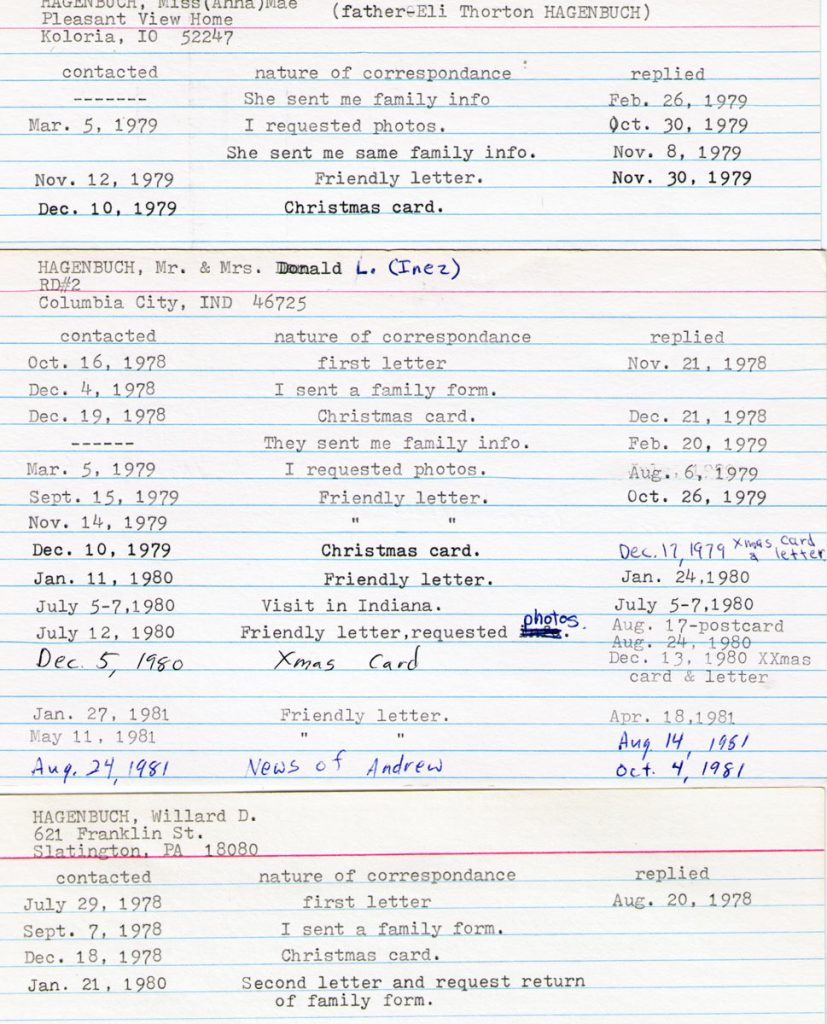 HAGENBUCH, Miss(Anna)Mae (father-Eli Thorton HAGENBUCH)
Pleasant View Home
Koloria, IO 52247
contacted nature of correspondance replied
------- She sent me family info Feb. 26, 1979
Mar. 5, 1979 I requested photos. Oct. 30, 1979
She sent me same family info. Nov. 8, 1979
Nov. 12, 1979 Friendly letter. Nov. 30, 1979
Dec. 10, 1979 Christmas card.
HAGENBUCH, Mr. & Mrs. Donald L. (Inez)
RD#2
Columbia City, IND 46725
contacted nature of correspondance replied
Oct. 16, 1978 first letter Nov. 21, 1978
Dec. 4, 1978 I sent a family form.
Dec. 19, 1978 Christmas card. Dec. 21, 1978
------ They sent me family info. Feb. 20, 1979
Mar. 5, 1979 I requested photos. Aug. 6, 1979
Sept. 15, 1979 Friendly letter. Oct. 26, 1979
Nov. 14, 1979 " "
Dec. 10, 1979 Christmas card. Dec. 17, 1979 Xmas card & letter
Jan. 11, 1980 Friendly letter. Jan. 24,1980
July 5-7,1980 Visit in Indiana. July 5-7,1980
July 12, 1980 Friendly letter,requested photos. Aug. 17-postcard
Aug. 24, 1980
Dec. 5, 1980 Xmas Card Dec. 13, 1980 XXmas
card & letter
Jan. 27, 1981 Friendly letter. Apr. 18,1981
May 11, 1981 " " Aug 14, 1981
Aug. 24, 1981 News of Andrew Oct. 4, 1981
HAGENBUCH, Willard D.
621 Franklin St.
Slatington, PA 18080
contacted nature of correspondance replied
July 29, 1978 first letter Aug. 20, 1978
Sept. 7, 1978 I sent a family form.
Dec. 18, 1978 Christmas card.
Jan. 21, 1980 Second letter and request return
of family form.